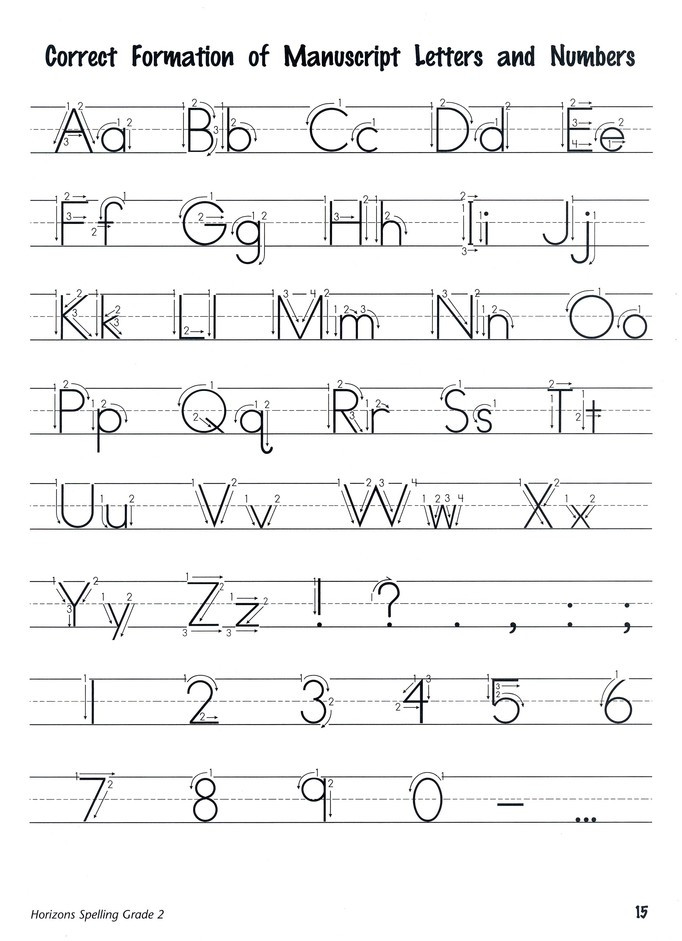 Correct Formation of Manuscript Letters and Numbers
Aa Bb Cc Dd Ee
Ff Gg Hh Ii Jj
Kk Ll Mm Nn Oo
Pp Qq Rr Ss Tt
Uu Vv Ww Xx
Yy Zz ! ? . , : ;
1 2 3 4 5 6
7 8 9 0 – ...
Horizons Spelling Grade 2 15